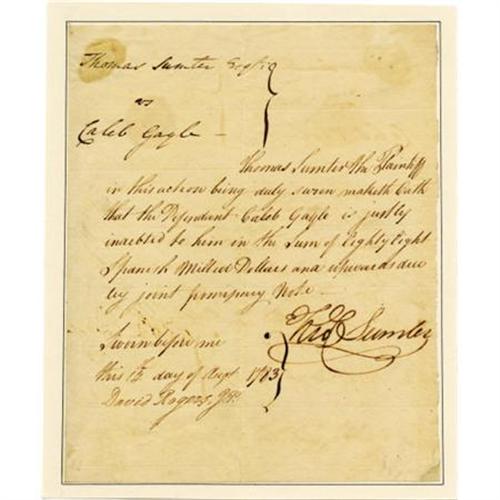 Thomas Sumter Esqr
vs
Caleb Gayle
Thomas Sumter the Plaintiff
in this action being duly sworn maketh Oath
that the Defendant Caleb Gayle is justly
indebted to him in the Sum of Eighty Eight
Spanish Milled Dollars and upwards due
by joint promisory Note
Thos Sumter
Sworn before me
this day of Augt 1783
David Rogers, JP.